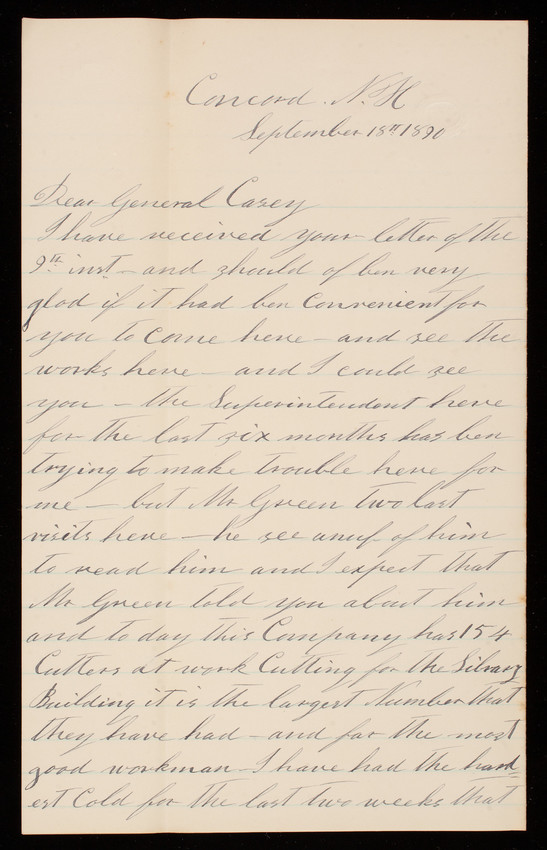 Concord. N. H
September 18th 1890
Dear General Casey
I have received your letter of the
9th inst - and should of ben very
glod if it had ben Convenient for
you to Come here - and see the
works here - and I could see
you - the Superintendant here
for the last six months has ben
trying to make trouble here for
me - but Mr Green two last
visits here - he see anuf of him
to read him and I expect that
Mr Green told you about him
and to day this Company has 154
Cutters at work Cutting for the Library
Building it is the largest Number that
they have had - and far the most
good workman - I have had the hard-
est Cold for the last two weeks that